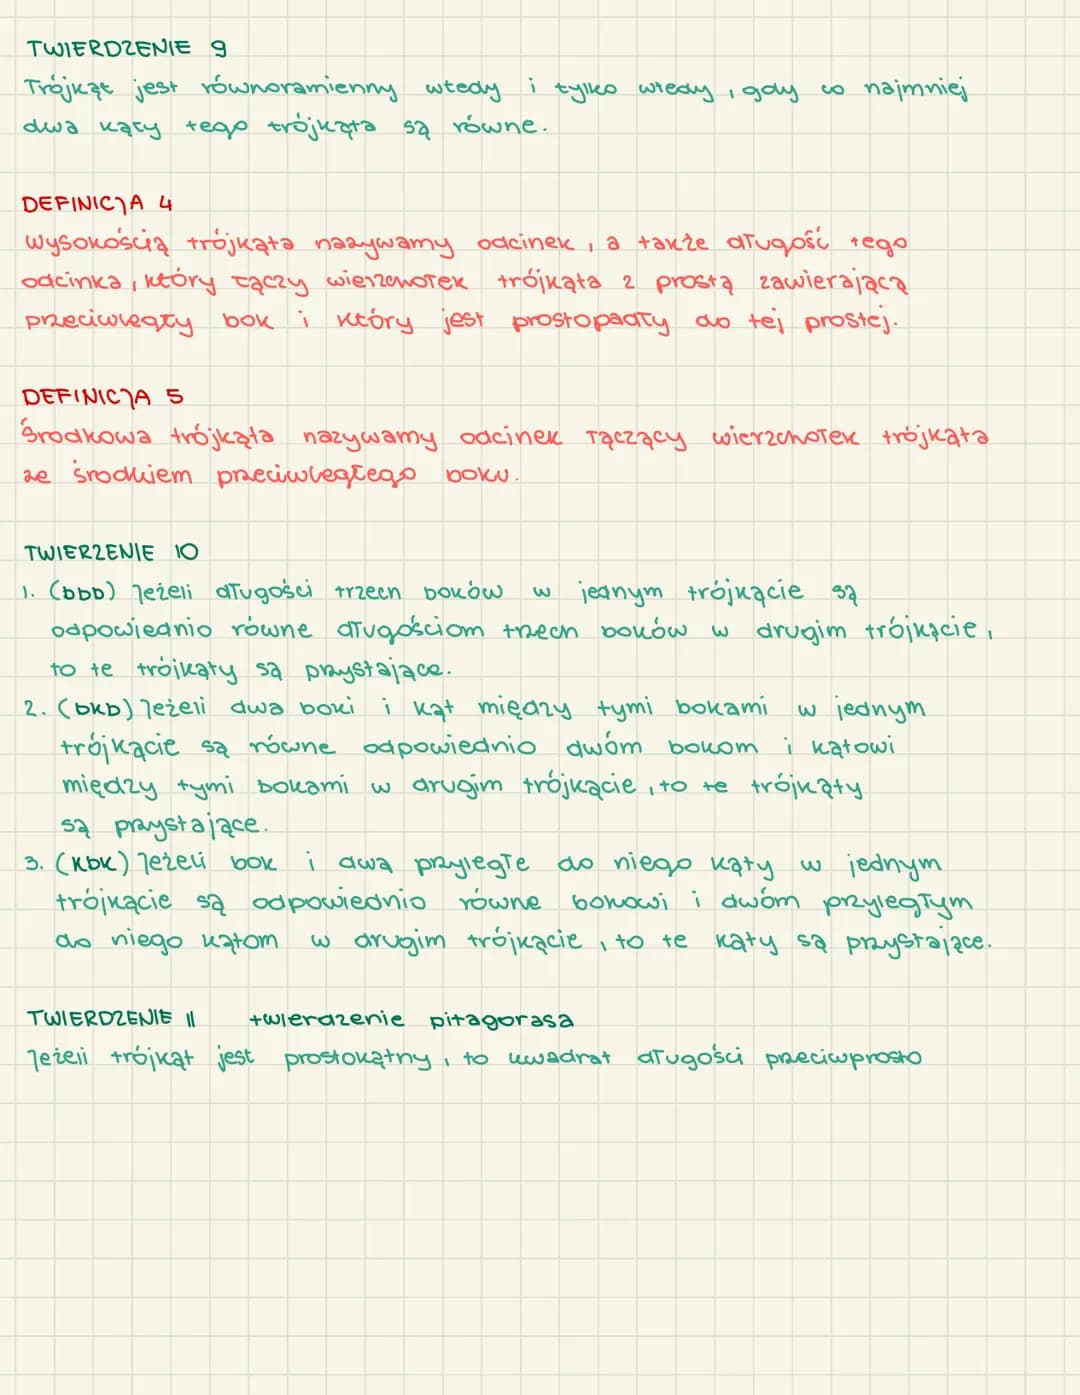 TWIERDZENIE 9
Trójkąt jest równoramienny wtedy i tylko wtedy, gdy co najmniej
dwa kąty tego trójkąta są równe.
DEFINICJA 4
Wysokością trójkąta nazywamy odcinek, a także długość tego
odcinka, który łączy wierzchołek trójkąta z prostą zawierającą
przeciwległy bok i który jest prostopadły do tej prostej.
DEFINICJA 5
Środkowa trójkąta nazywamy odcinek łączący wierzchołek trójkąta
ze środkiem przeciwległego boku.
TWIERZENIE 10
1. (bbb) Jeżeli długości trzech boków w jednym trójkącie są
odpowiednio równe długościom trzech boków w drugim trójkącie,
to te trójkąty są przystające.
2. (bkb) Jeżeli dwa boki i kąt między tymi bokami w jednym
trójkącie są równe odpowiednio dwóm bokom i kątowi
między tymi bokami w drugim trójkącie, to te trójkąty
są przystające.
3. (kbk) Jeżeli bok i dwa przyległe do niego kąty w jednym
trójkącie są odpowiednio równe bokowi i dwóm przyległym
do niego kątom w drugim trójkącie, to te kąty są przystające.
TWIERDZENIE 11 twierdzenie pitagorasa
Jeżeli trójkąt jest prostokątny, to kwadrat długości przeciwprosto